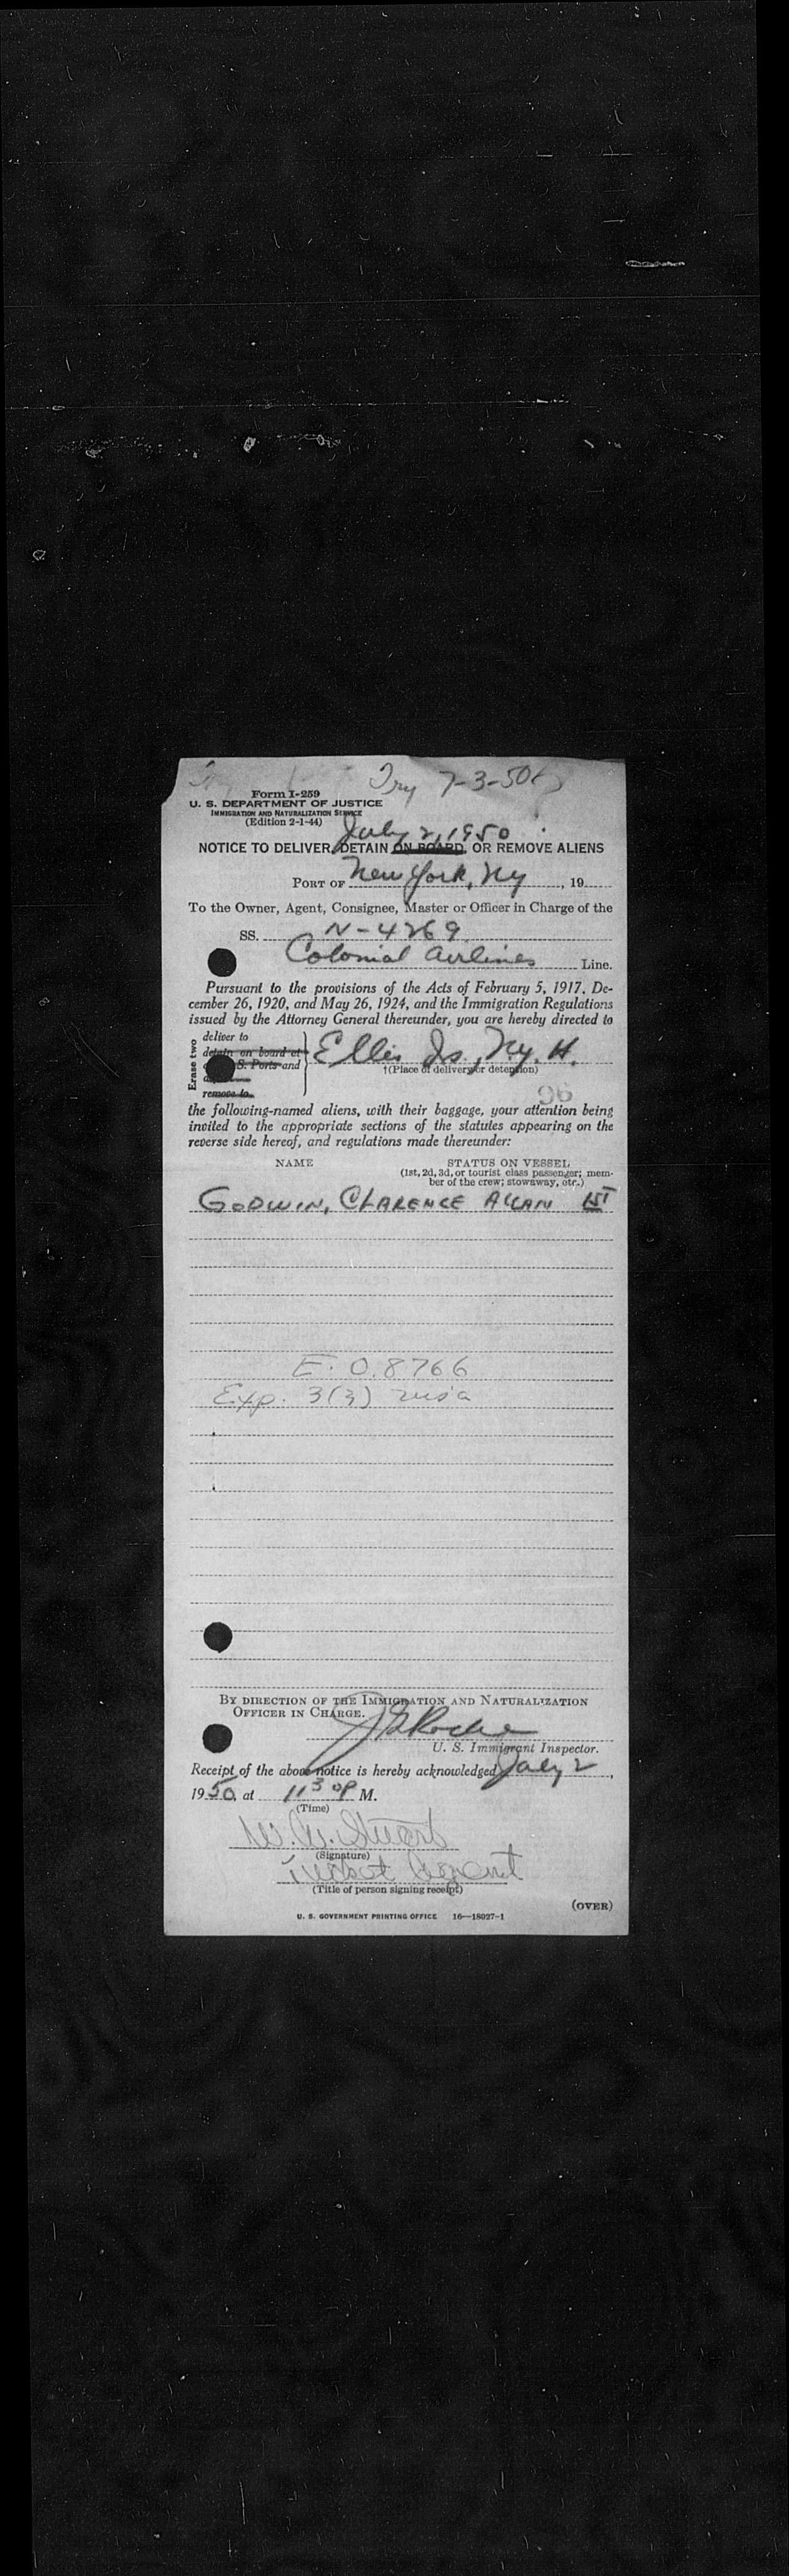 Try 7-3-50
Form I-259
U. S. DEPARTMENT OF JUSTICE
IMMIGRATION AND NATURALIZATION SERVICE
(Edition 2-1-44)
July 2, 1950
NOTICE TO DELIVER, DETAIN ON BOARD, OR REMOVE ALIENS
PORT OF New York, Ny, 19
To the Owner, Agent, Consignee, Master or Officer in Charge of the
SS. N-4269
Colonial Airlines Line.
Pursuant to the provisions of the Acts of February 5, 1917, De-
cember 26, 1920, and May 26, 1924, and the Immigration Regulations
issued by the Attorney General thereunder, you are hereby directed to
Erase two
deliver to
detain on board at
S. Ports and
remove to
Ellis Is., Ny. H.
†(Place of delivery or detention)
96
the following-named aliens, with their baggage, your attention being
invited to the appropriate sections of the statutes appearing on the
reverse side hereof, and regulations made thereunder:
NAME STATUS ON VESSEL
(1st, 2d, 3d, or tourist class passenger; mem-
ber of the crew; stowaway, etc.)
GODWIN, CLARENCE ALLAN 1ST
E. O. 8766
Exp. 3(3) visa
BY DIRECTION OF THE IMMIGRATION AND NATURALIZATION
OFFICER IN CHARGE.
Roche
U. S. Immigrant Inspector.
Receipt of the above notice is hereby acknowledged July 2,
1950, at 11 30 P M.
(Time)
W. W. Stuart
(Signature)
Ticket Agent
(Title of person signing receipt)
(OVER)
U. S. GOVERNMENT PRINTING OFFICE 16—18027-1